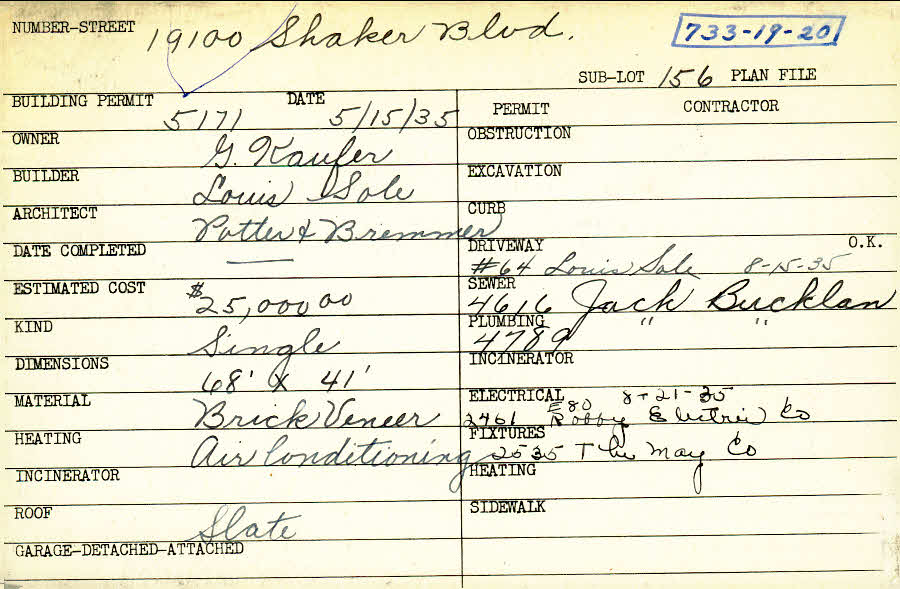 NUMBER-STREET 19100 Shaker Blvd. 733-19-20
SUB-LOT 156 PLAN FILE
BUILDING PERMIT 5171 DATE 5/15/35
PERMIT CONTRACTOR
OWNER G. Kaufer
OBSTRUCTION
BUILDER Louis Sole
EXCAVATION
ARCHITECT Potter & Bremmer
CURB
DATE COMPLETED —
DRIVEWAY #64 Louis Sole 8-15-35 O.K.
ESTIMATED COST $25,000 00
SEWER 4616 Jack Bucklan
KIND Single
PLUMBING 4789 " "
DIMENSIONS 68' x 41'
INCINERATOR
MATERIAL Brick Veneer
ELECTRICAL E80 8-21-35
2461 Electric Co
HEATING Air Conditioning
FIXTURES 2535 The May Co
INCINERATOR
HEATING
ROOF Slate
SIDEWALK
GARAGE-DETACHED-ATTACHED